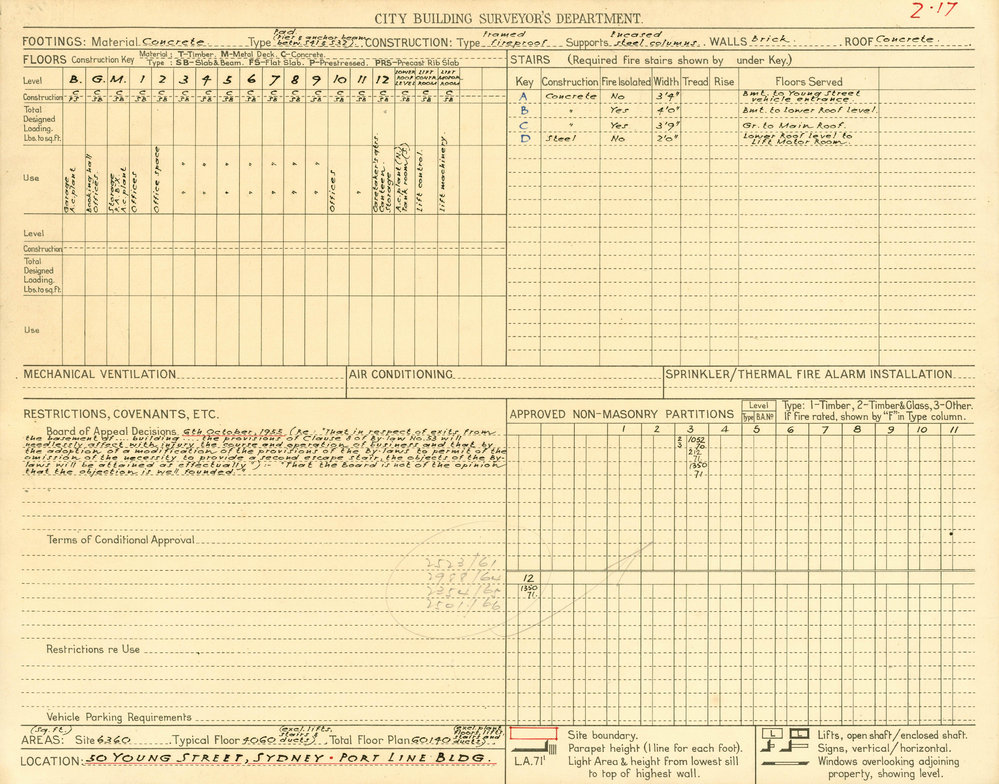 CITY BUILDING SURVEYOR'S DEPARTMENT.
2·17
FOOTINGS: Material Concrete Type Pad (tier & anchor beam betw. 541 & 532). CONSTRUCTION: Type Framed fireproof Supports Encased steel columns. WALLS Brick. ROOF Concrete.
FLOORS Construction Key Material: T-Timber, M-Metal Deck, C-Concrete.
Type: SB-Slab&Beam. FS-Flat Slab. P-Prestressed. PRS-Precast Rib Slab
Level B. G. M. 1 2 3 4 5 6 7 8 9 10 11 12 LOWER ROOF LEVEL LIFT CONTR. ROOM LIFT MOTOR ROOM
Construction C FS C SB C SB C SB C SB C SB C SB C SB C SB C SB C SB C SB C SB C SB C SB C SB C SB C SB
Total
Designed
Loading.
Lbs.to sq.ft.
Use
Garage A.c. plant
Booking hall Offices
Storage P.A.B.X A.c. plant
Offices
Office space
" " " " " " "
" " " " " " "
Offices
"
Caretaker's qtrs. Canteen. Storage
A.c. plant (N) Tank room (S)
Lift control.
Lift machinery.
Level
Construction
Total
Designed
Loading.
Lbs.to sq.ft.
Use
STAIRS (Required fire stairs shown by under Key.)
Key Construction Fire Isolated Width Tread Rise Floors Served
A Concrete No 3'4" Bmt. to Young Street vehicle entrance.
B " Yes 4'0" Bmt. to lower Roof level.
C " Yes 3'9" Gr. to Main Roof.
D Steel No 2'0" Lower Roof level to Lift Motor Room.
MECHANICAL VENTILATION
AIR CONDITIONING
SPRINKLER/THERMAL FIRE ALARM INSTALLATION
RESTRICTIONS, COVENANTS, ETC.
Board of Appeal Decisions 6th October, 1955. (Re: "That in respect of exits from
the basement of.... building .... the provisions of Clause 8 of By-law No. 53 will
needlessly affect with injury the course and operation of business and that by
the adoption of a modification of the provisions of the By-laws to permit of the
omission of the necessity to provide a second escape stair, the objects of the By-
laws will be attained as effectually") :- "That the Board is not of the opinion
that the objection is well founded."
Terms of Conditional Approval
2523/61
2988/64
2354/65
2501/66
Restrictions re Use
Vehicle Parking Requirements
APPROVED NON-MASONRY PARTITIONS
Level
Type B.A.No
Type: 1-Timber, 2-Timber&Glass, 3-Other.
If Fire rated, shown by "F" in Type column.
1 2 3 4 5 6 7 8 9 10 11
2 1052
3 70
212
71
1350
71
12
1350
71.
AREAS: (Sq. ft.) Site 6360 Typical Floor 4060 (excl. lifts, stairs & ducts) Total Floor Plan 60140 (excl. plant floors, lifts, stairs & ducts)
LOCATION: 50 YOUNG STREET, SYDNEY · PORT LINE BLDG.
Site boundary.
Parapet height (1 line for each foot).
L.A.71' Light Area & height from lowest sill
to top of highest wall.
L Lifts, open shaft/enclosed shaft.
Signs, vertical/horizontal.
Windows overlooking adjoining
property, showing level.